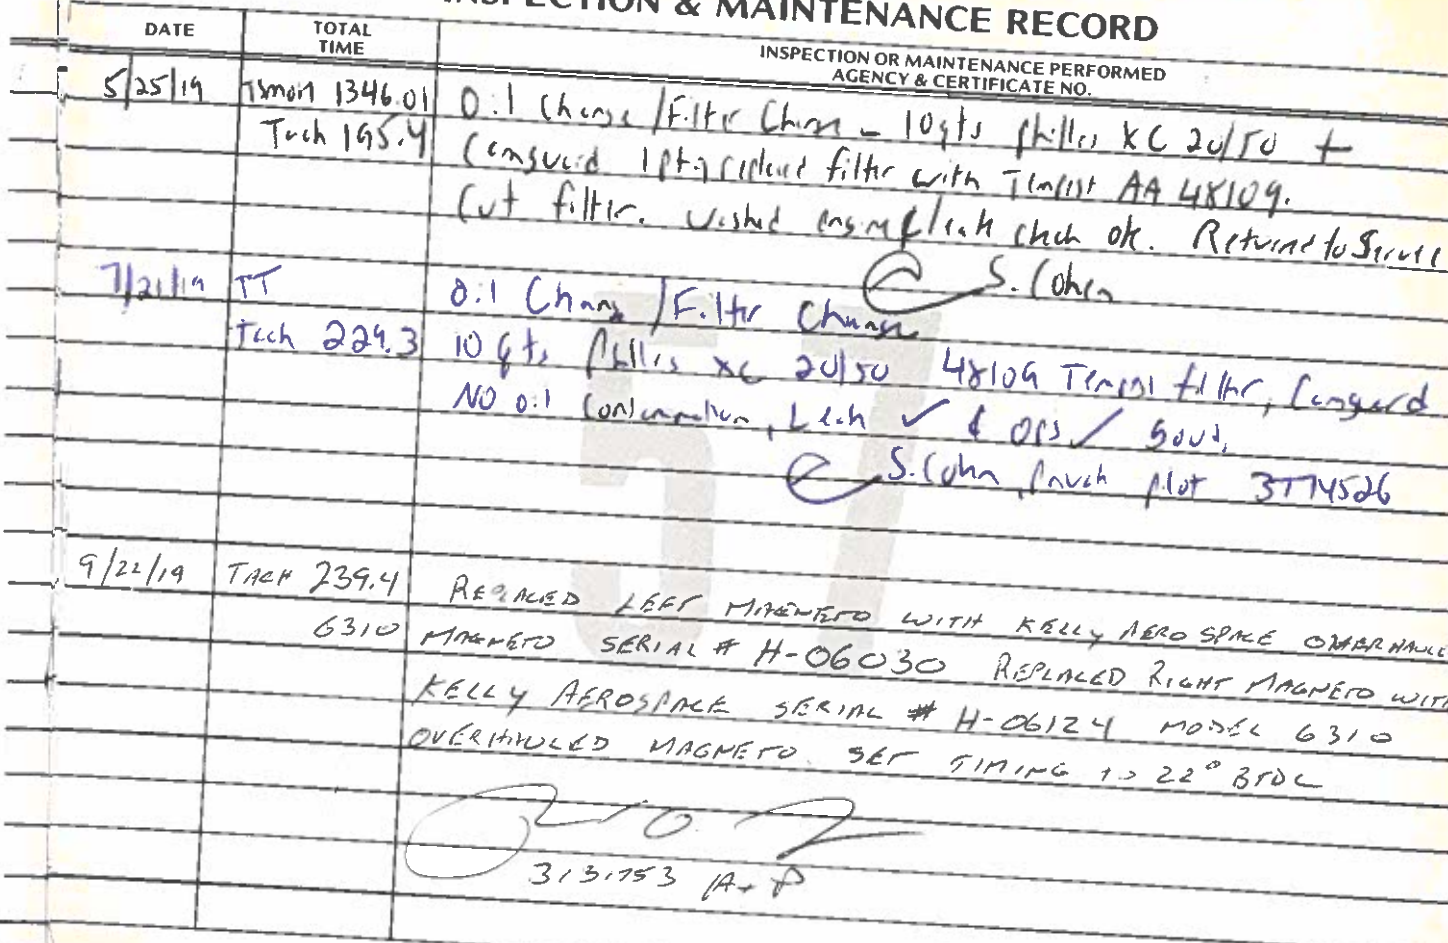 INSPECTION & MAINTENANCE RECORD
DATE
TOTAL TIME
INSPECTION OR MAINTENANCE PERFORMED
AGENCY & CERTIFICATE NO.
5/25/19 TSMOH 1346.01 Oil Change / Filter Change - 10qts Phillips XC 20/50 +
Tach 195.4 Camguard 1pt, replaced filter with Tempest AA 48109.
Cut filter. Washed engine leak check ok. Returned to Service
S. Cohen
7/21/19 TT Oil Change / Filter Change
Tach 229.3 10 qts Phillips XC 20/50 48109 Tempest filter, Camguard
NO oil contamination, Leak ✓ & ops ✓ Good.
S. Cohn, Private pilot 3774526
9/22/19 TACH 239.4 REPLACED LEFT MAGNETO WITH KELLY AEROSPACE OVERHAULE
6310 MAGNETO SERIAL # H-06030 REPLACED RIGHT MAGNETO WITH
KELLY AEROSPACE SERIAL # H-06124 MODEL 6310
OVERHAULED MAGNETO. SET TIMING TO 22° BTDC
3131753 A+P
57